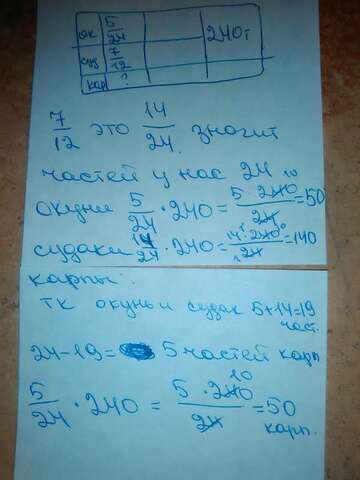 ок 5/24 240г
суд 7/12
кар ?
7/12 это 14/24. значит
частей у нас 24
окуни 5/24 · 240 = 5·240/24 = 50
судаки 14/24 · 240 = 14·240/24 = 140
карпы:
тк окунь и судак 5+14=19
част.
24-19= 5 частей карп
5/24 · 240 = 5·240/24 = 50
карп.